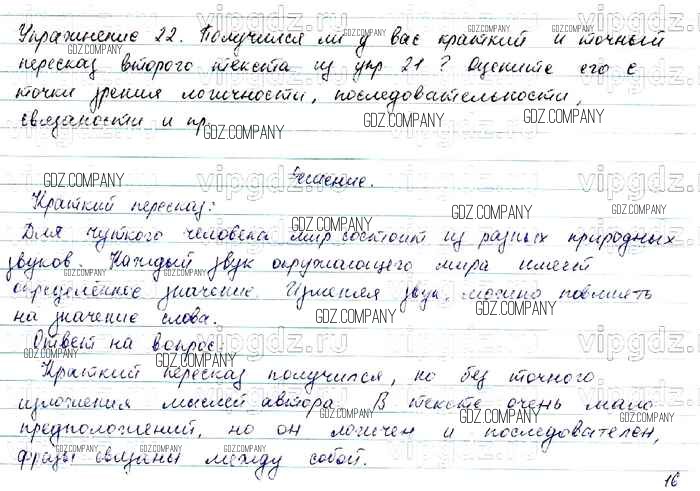 Упражнение 22. Получился ли у вас краткий и точный
пересказ второго текста из упр 21? Оцените его с
точки зрения логичности, последовательности,
связаности и пр.
Решение.
Краткий пересказ:
Для чуткого человека мир состоит из разных природных
звуков. Каждый звук окружающего мира имеет
определённое значение. Изменяя звук, можно повлиять
на значение слова.
Ответ на вопрос:
Краткий пересказ получился, но без точного
изложения мыслей автора. В тексте очень мало
предположений, но он логичен и последователен,
фразы связаны между собой.
16
GDZ.COMPANY
vipgdz.ru